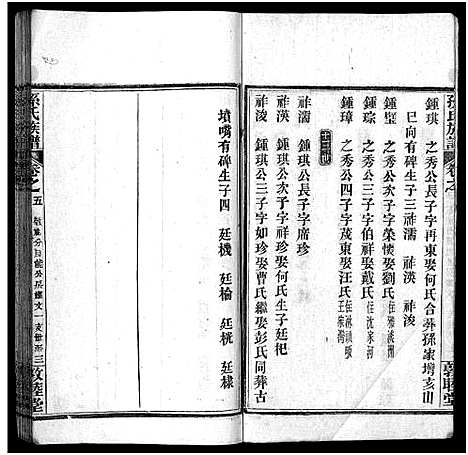 孫氏族譜
卷之
敦睦堂
鍾琪 之秀公長子字再東娶何氏合葬孫家塆亥山
巳向有碑生子三 祚濡 祚渶 祚浚
鍾璧 之秀公次子字榮懷娶劉氏
鍾琮 之秀公三子字伯祥娶戴氏住沈家河
鍾璋 之秀公四子字茂東娶汪氏
十三世
祚濡 鍾琪公長子字席珍
祚渶 鍾琪公次子字祥珍娶何氏生子廷杷
祚浚 鍾琪公三子字如珍娶曹氏繼娶彭氏同葬古
墳嘴有碑生子四 廷機 廷榆 廷桄 廷棣
孫氏族譜
卷之五
三敦睦堂